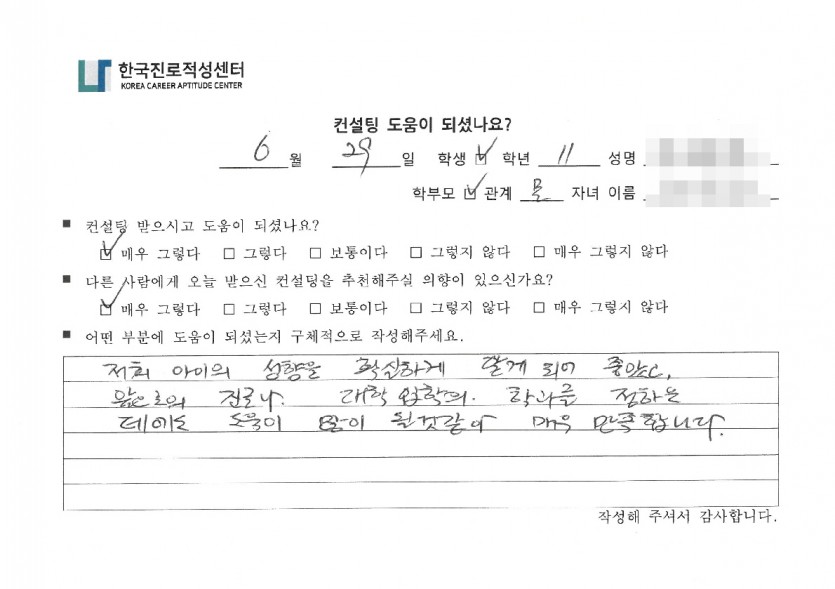 한국진로적성센터
KOREA CAREER APTITUDE CENTER
컨설팅 도움이 되셨나요?
6 월 29 일 학생 ☑ 학년 11 성명
학부모 ☑ 관계 자녀 이름
■ 컨설팅 받으시고 도움이 되셨나요?
☑ 매우 그렇다 □ 그렇다 □ 보통이다 □ 그렇지 않다 □ 매우 그렇지 않다
■ 다른 사람에게 오늘 받으신 컨설팅을 추천해주실 의향이 있으신가요?
☑ 매우 그렇다 □ 그렇다 □ 보통이다 □ 그렇지 않다 □ 매우 그렇지 않다
■ 어떤 부분에 도움이 되셨는지 구체적으로 작성해주세요.
저희 아이의 성향을 확실하게 알게 되어 좋았고,
앞으로의 진로나 대학 입학의 학과를 정하는
데에도 도움이 많이 될것같아 매우 만족합니다.
작성해 주셔서 감사합니다.